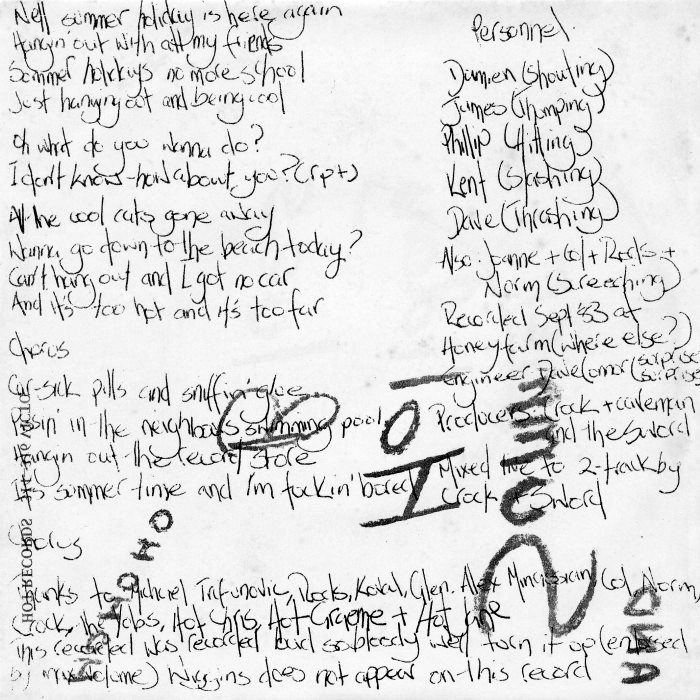 Well summer holiday is here again
Hangin' out with all my friends
Summer holidays no more school
Just hanging out and being cool
Oh what do you wanna do?
I don't know - how about you? (rpt)
All the cool cats gone away
Wanna go down to the beach today?
Can't hang out and I got no car
And it's too hot and it's too far
Chorus
Car-sick pills and sniffin' glue
Pissin' in the neighbours swimming pool
Hangin out the record store
It's summer time and I'm fuckin' bored
Chorus
Personnel.
Damien (Shouting)
James (Thumping)
Phillip (Hitting)
Kent (Slashing)
Dave (Thrashing)
Also: Joanne + Col + Rocks +
Norm (Screeching)
Recorded Sept '83 at
Honeyfarm (where else?)
engineer Dave (surprise
surprise
Producers: Crock + caveman
and the Sword
Mixed live to 2-track by
Crock + Sword
Thanks to Michael Trifunovic, Rocks, Koval, Glen, Alex Col, Norm,
Crock, the Yobs, Hot Chris, Hot Graeme + Hot
This recorded was recorded loud so bloody well turn it up
by max volume) Wiggins does not appear on this record
HOT RECORDS